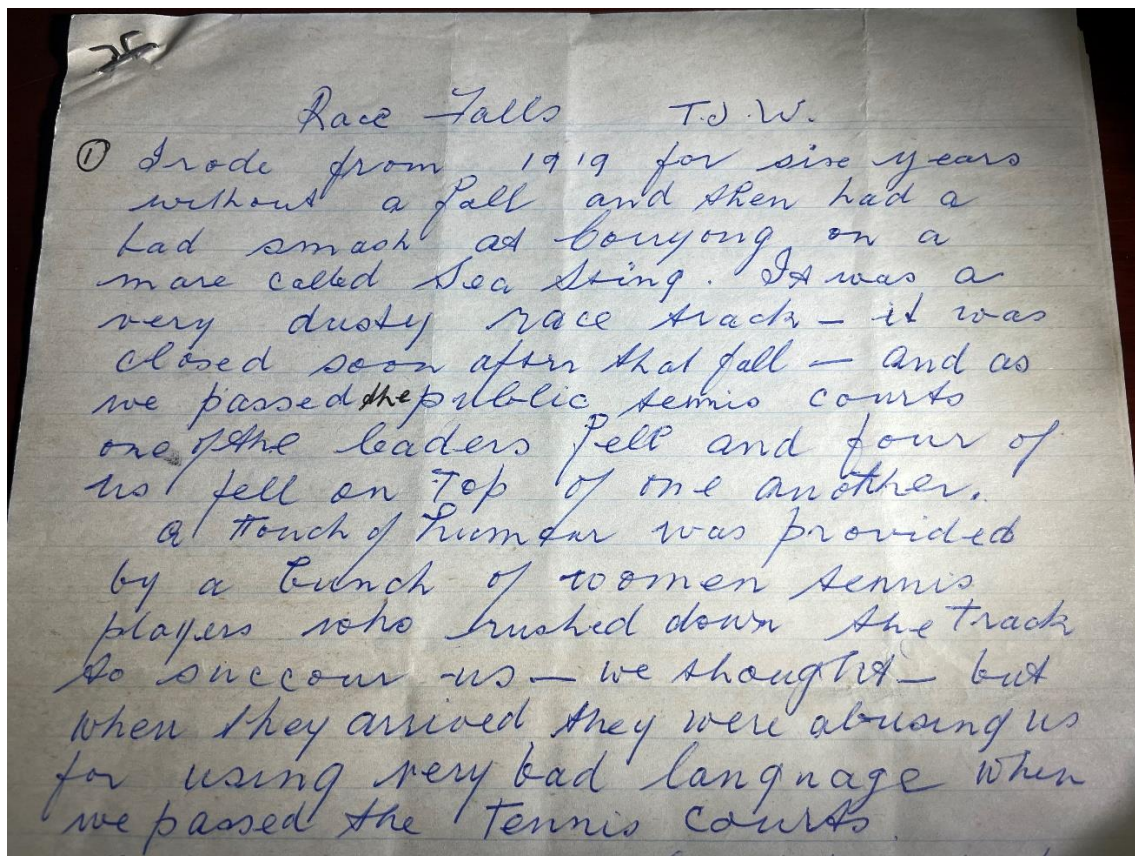 25
Race Falls T.J.W.
① I rode from 1919 for six years
without a fall and then had a
bad smash at Corryong on a
mare called Sea Sting. It was a
very dusty race track – it was
closed soon after that fall – and as
we passed the public tennis courts
one of the leaders fell and four of
us fell on Top of one another.
a Touch of humour was provided
by a bunch of women tennis
players who rushed down the Track
to succour us – we thought – but
when they arrived they were abusing us
for using very bad language when
we passed the Tennis Courts.